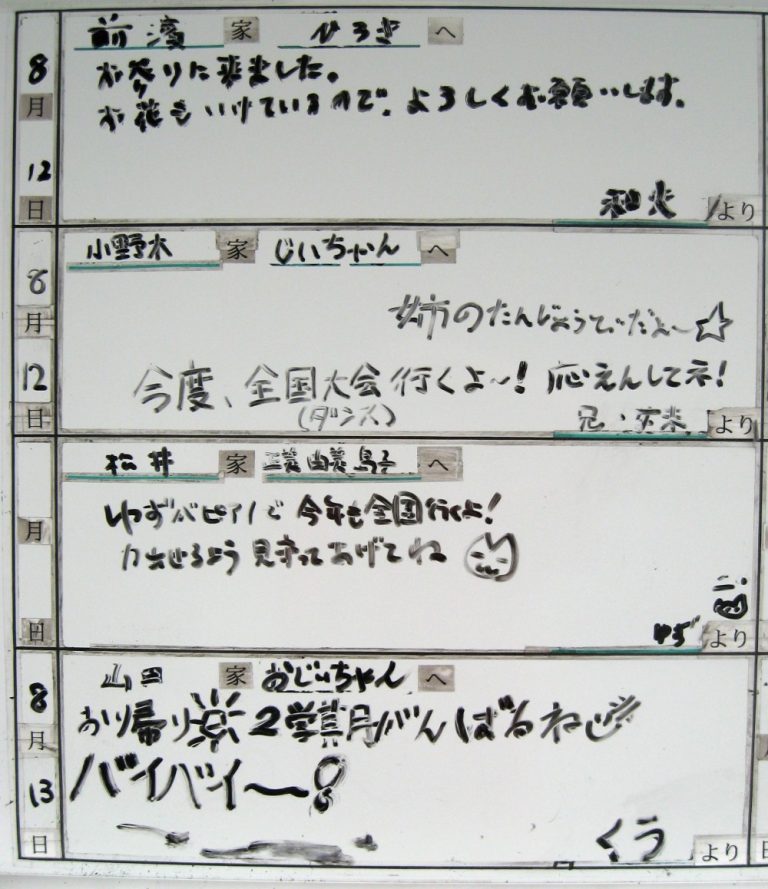 前濱 家 ひろき へ
8月12日
お参りに来ました。
お花もいけているので、よろしくお願いします。
和火 より
小野木 家 じいちゃん へ
8月12日
姉のたんじょうびだよ〜☆
今度、全国大会行くよ〜! 応えんしてネ!
(ダンス)
兄 より
松井 家 へ
月 日
ゆずがピアノで今年も全国行くよ!
力出せるよう見守ってあげてね
ゆず より
山田 家 おじいちゃん へ
8月13日
おり帰り 2学期がんばるね
バイバイ〜!
くう より